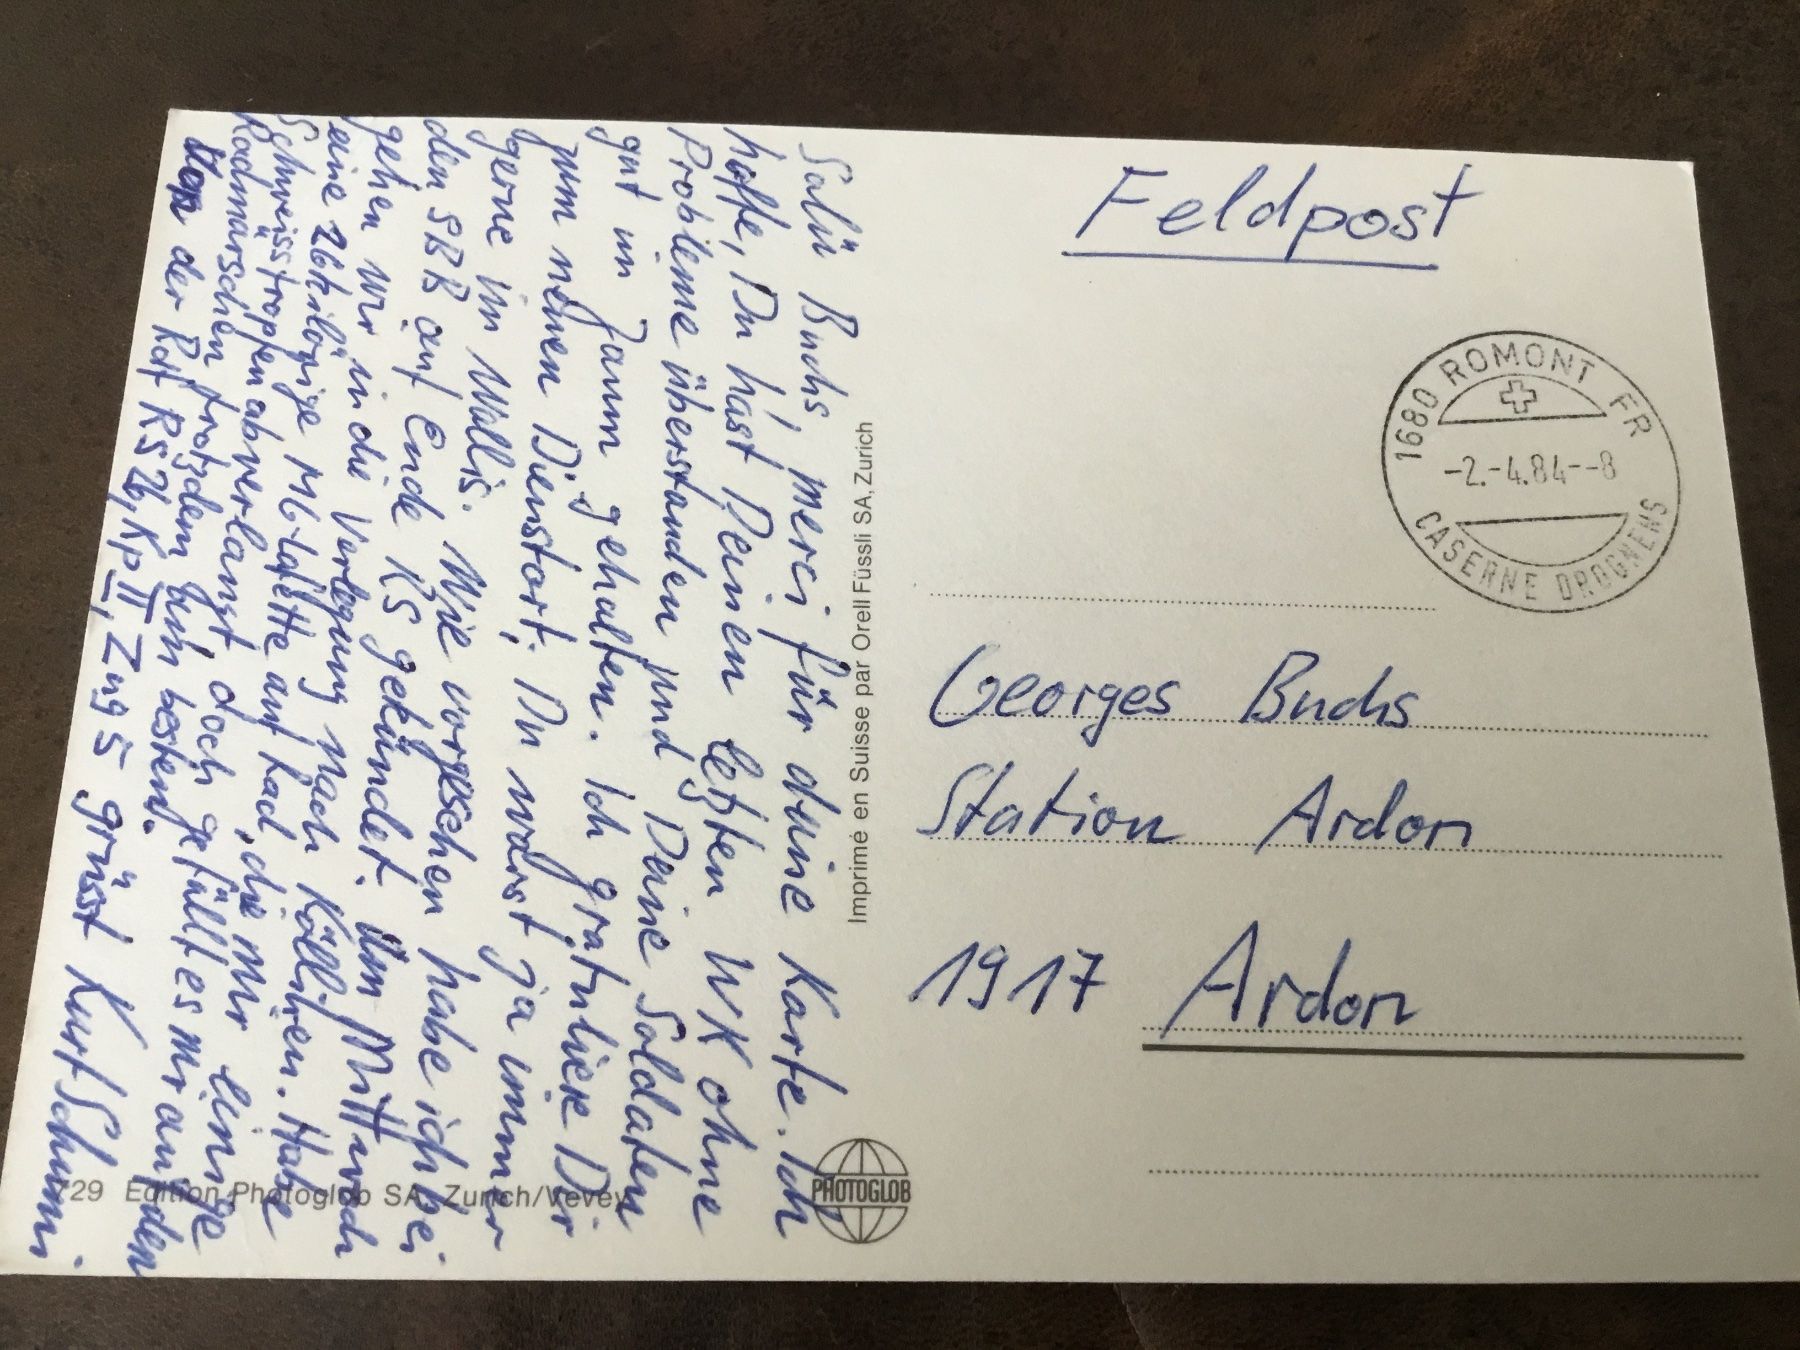 Salü Buchs, merci für deine Karte. Ich
hoffe, Du hast Deinen letzten WK ohne
Probleme überstanden und Deine Soldaten
gut im Zaum gehalten. Ich gratuliere Dir
zum neuen Dienstort. Du warst ja immer
gerne im Wallis. Wie vorgesehen habe ich bei
den SBB auf Ende RS gekündet. Am Mittwoch
gehen wir in die Verlegung nach Kölliken. Habe
eine 26kilorige MG-Lafette auf Rad, die mir einige
Schweisstropfen abverlangt doch gefällt es mir auf den
Radmärschen trotzdem am besten.
Von der Rdf RS 26, Kp II, Zug 5 grüsst Kurt Schumi
729 Edition Photoglob SA, Zurich/Vevey
Imprimé en Suisse par Orell Füssli SA, Zurich
PHOTOGLOB
Feldpost
1680 ROMONT FR
-2.-4.84--8
CASERNE DROGNENS
Georges Buchs
Station Ardon
1917 Ardon